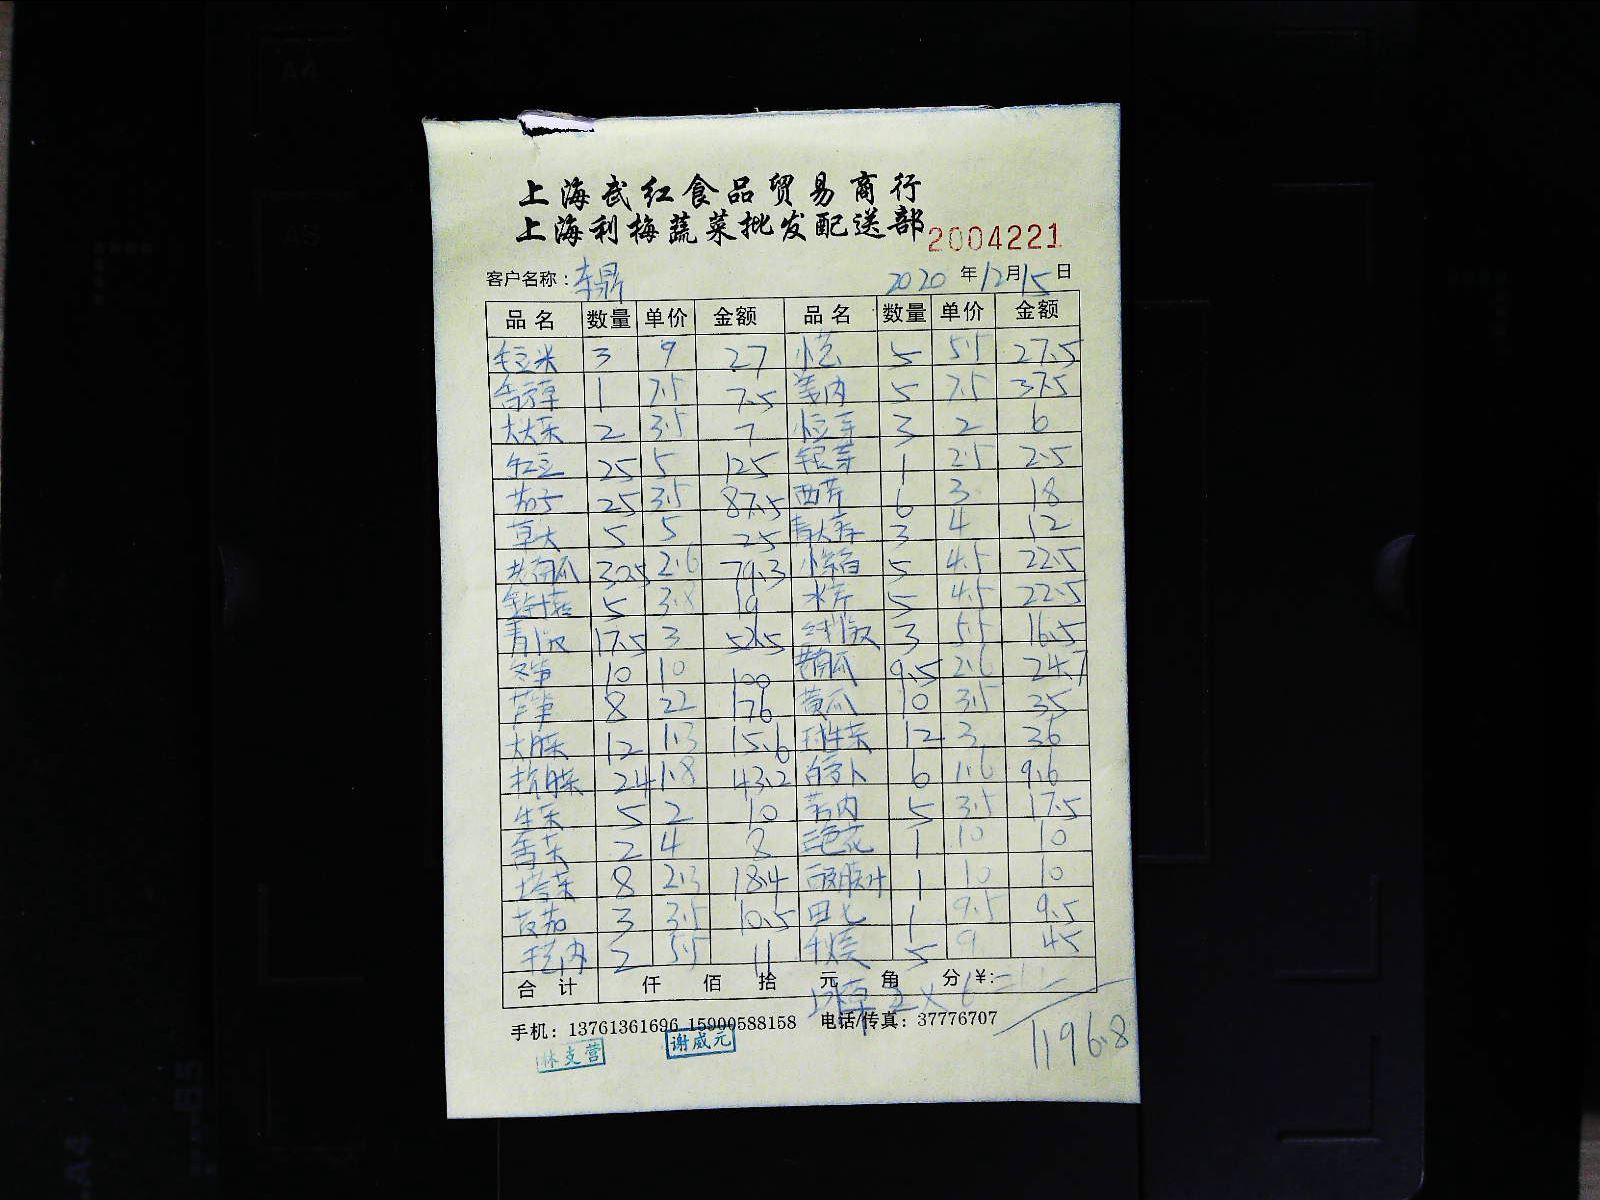 上海武红食品贸易商行
上海利梅蔬菜批发配送部 2004221
客户名称: 2020 年 12 月 15 日
品名 数量 单价 金额 品名 数量 单价 金额
毛豆米 3 9 27 5 5.5 27.5
1 7.5 7.5 姜肉 5 7.5 37.5
大大菜 2 3.5 7 3 2 6
红豆 25 5 125 银芽 1 2.5 2.5
茄子 25 3.5 87.5 西芹 6 3 18
草大 5 5 25 3 4 12
老南瓜 30.5 2.6 79.3 5 4.5 22.5
5 3.8 19 水芹 5 4.5 22.5
青椒 17.5 3 52.5 红椒 3 5.5 16.5
冬笋 10 10 100 老南瓜 9.5 2.6 24.7
芦笋 8 22 176 黄瓜 10 3.5 35
大白菜 12 1.3 15.6 球生菜 12 3 36
杭白菜 24 1.8 43.2 白萝卜 6 1.6 9.6
生菜 5 2 10 莴肉 5 3.5 17.5
香菜 2 4 8 三色花 1 10 10
塔菜 8 2.3 18.4 1 10 10
番茄 3 3.5 10.5 田七 1 9.5 9.5
2 5.5 11 5 9 45
合计 仟 佰 拾 元 角 分 ¥:
2×6=12
手机: 13761361696 15900588158 电话/传真: 37776707
1196.8
林支营 谢威元